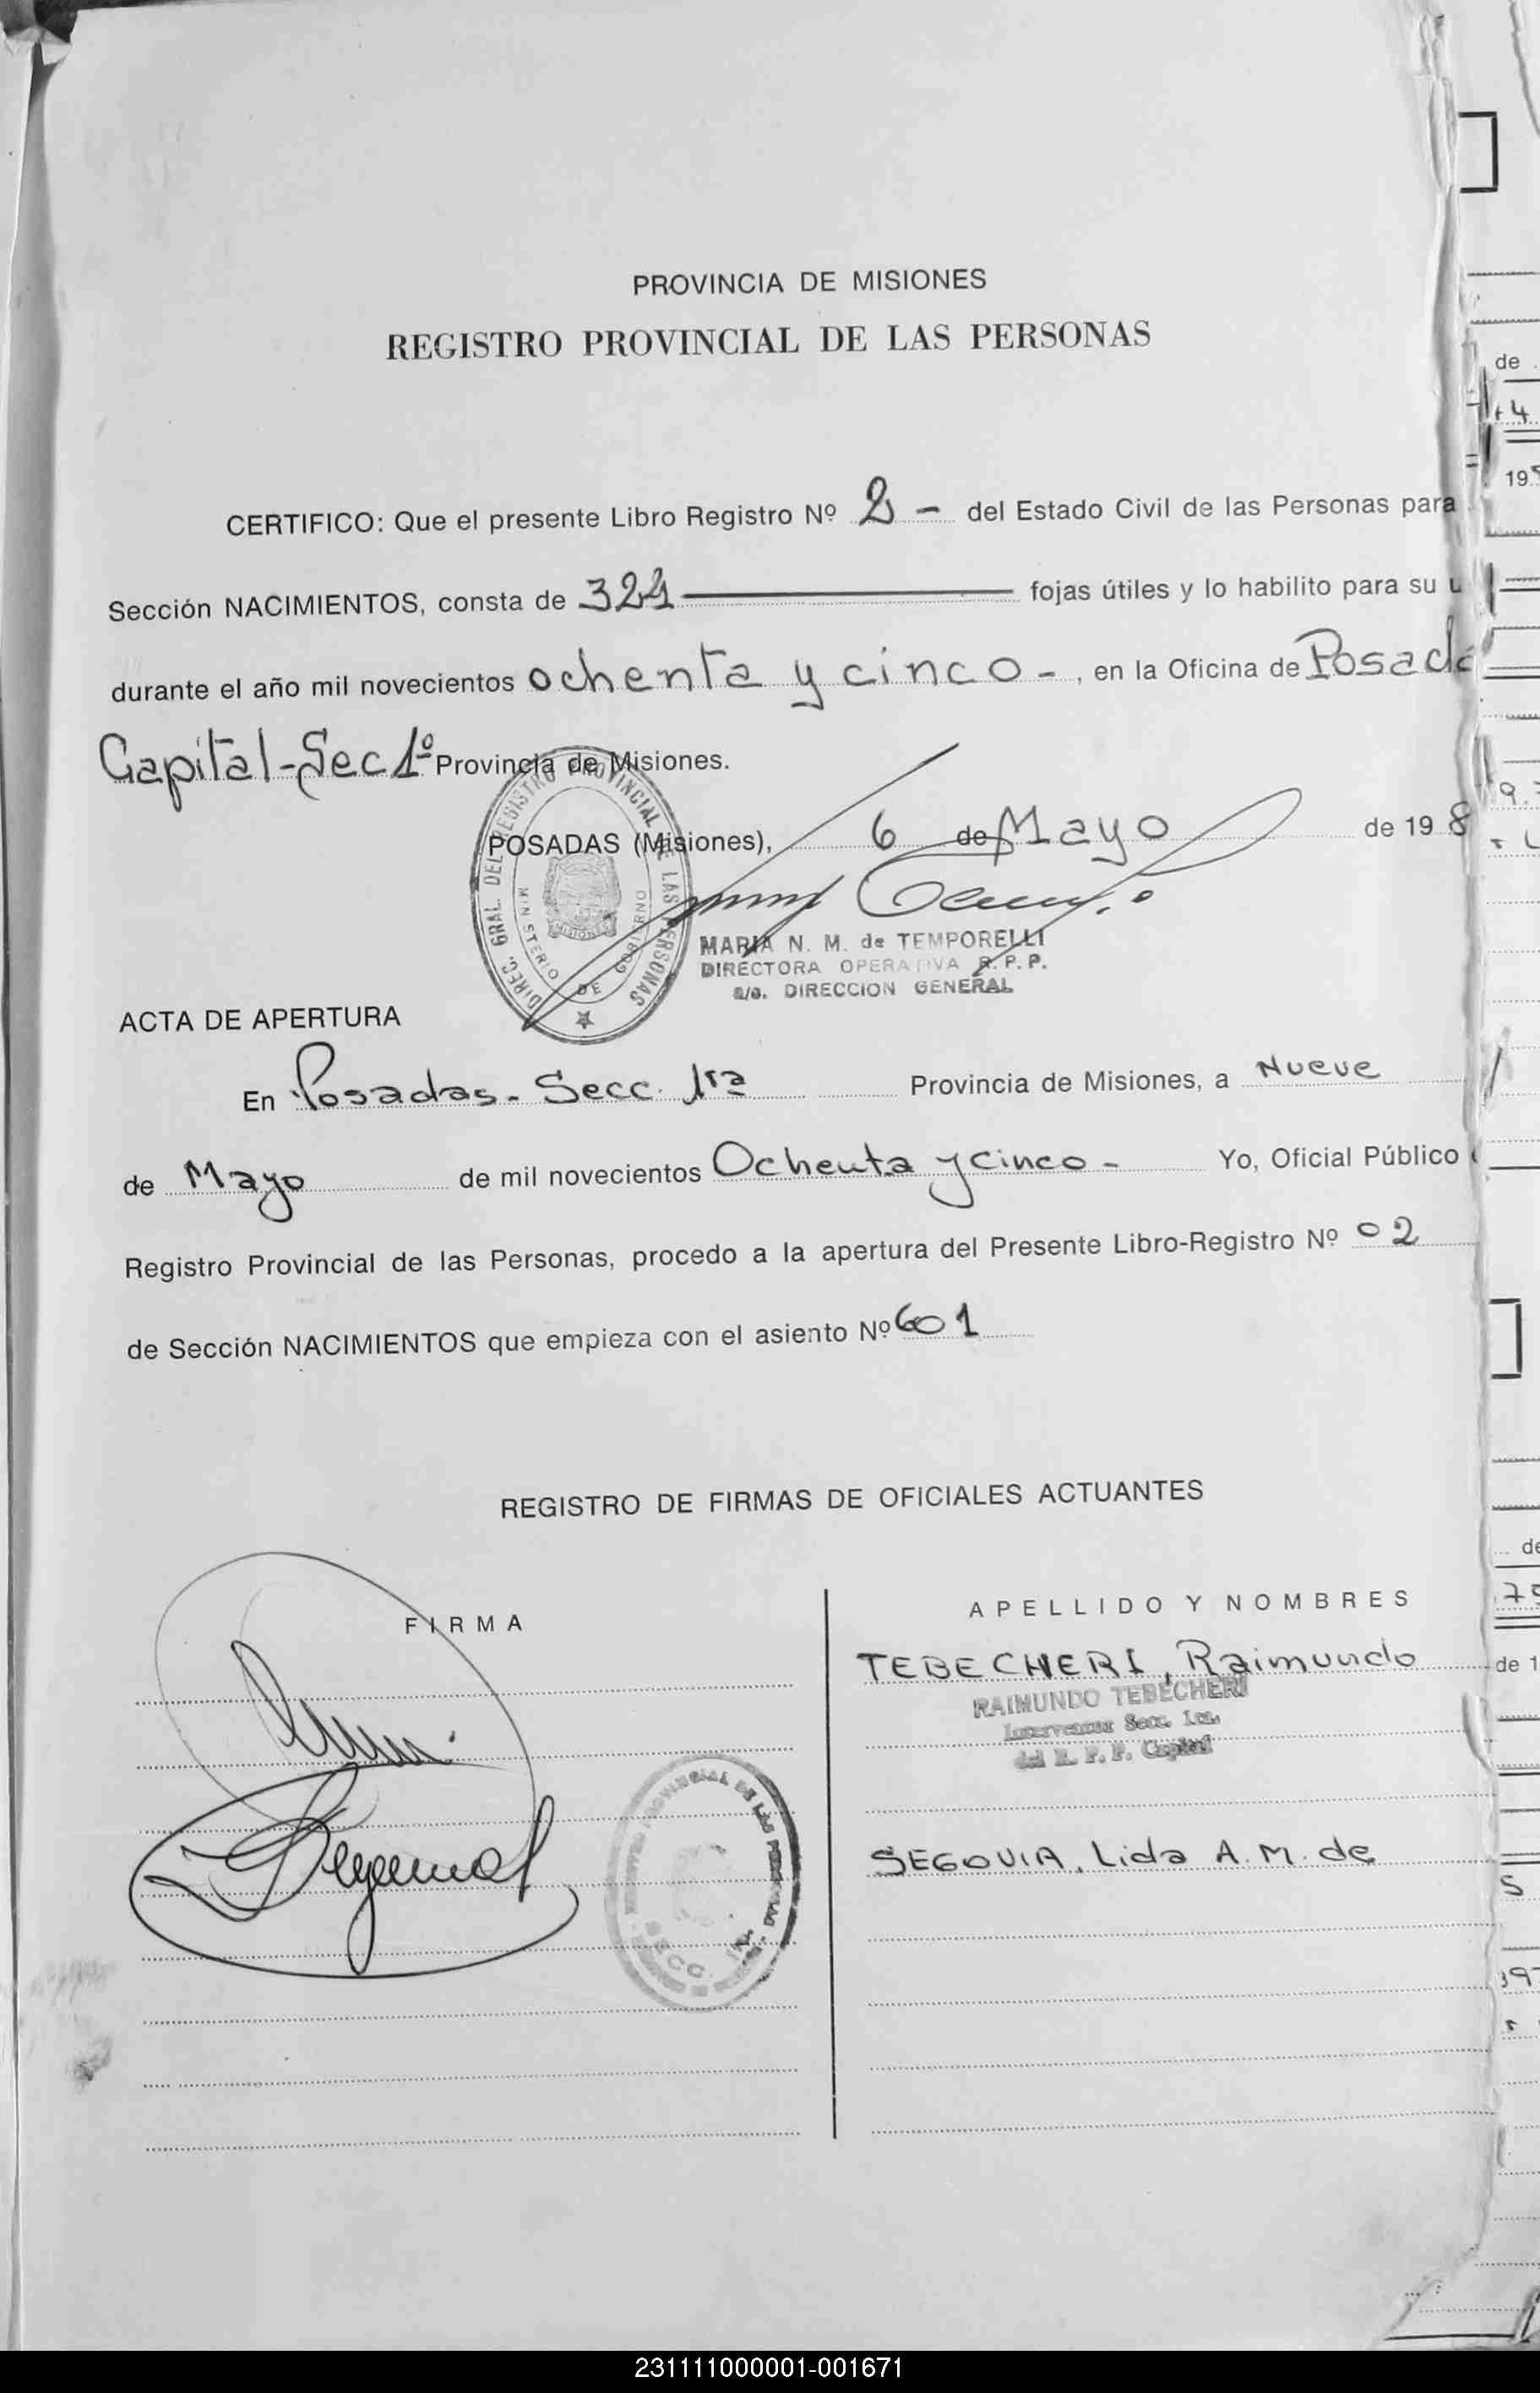 PROVINCIA DE MISIONES
REGISTRO PROVINCIAL DE LAS PERSONAS
de
+4
CERTIFICO: Que el presente Libro Registro Nº 2 - del Estado Civil de las Personas para
Sección NACIMIENTOS, consta de 324 fojas útiles y lo habilito para su u
durante el año mil novecientos ochenta y cinco - , en la Oficina de Posada
Capital-Sec 1º Provincia de Misiones.
POSADAS (Misiones), 6 de Mayo de 198
DIREC. GRAL. DEL REGISTRO PROVINCIAL DE LAS PERSONAS
MINISTERIO DE GOBIERNO
MISIONES
MARIA N. M. de TEMPORELLI
DIRECTORA OPERATIVA R. P. P.
a/c. DIRECCION GENERAL
ACTA DE APERTURA
En Posadas - Secc. 1ra Provincia de Misiones, a Nueve
de Mayo de mil novecientos Ochenta y cinco - Yo, Oficial Público
Registro Provincial de las Personas, procedo a la apertura del Presente Libro-Registro Nº 02
de Sección NACIMIENTOS que empieza con el asiento Nº 601
REGISTRO DE FIRMAS DE OFICIALES ACTUANTES
FIRMA
APELLIDO Y NOMBRES
TEBECHERI, Raimundo
RAIMUNDO TEBECHERI
Interventor Secc. 1ra.
del R. P. P. Capital
PROVINCIAL DE LAS PERSONAS
SECC. 1ra.
SEGOVIA, Lida A. M. de
231111000001-001671